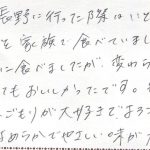 長野に行った際はいと
を家族で食べていまし
に食べましたが、変わら
てもおいしかったです。も
ごもりが大好きでまろ
なめらかでやさしい味が